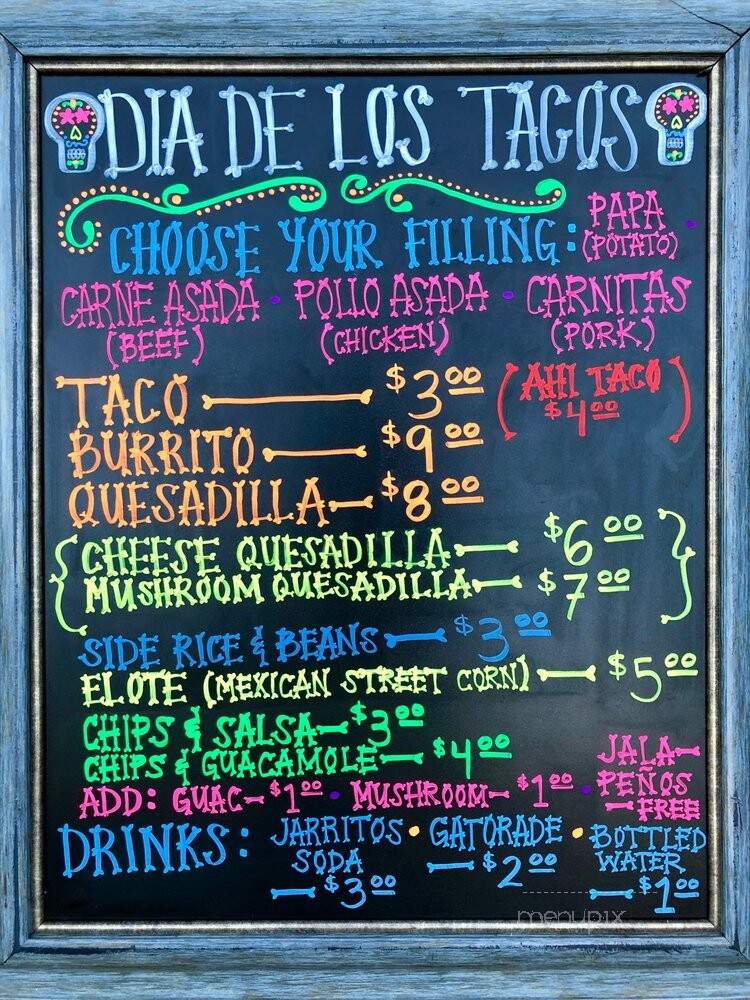 DIA DE LOS TACOS
CHOOSE YOUR FILLING: PAPA (POTATO)
CARNE ASADA • POLLO ASADA • CARNITAS
(BEEF) (CHICKEN) (PORK)
TACO — $3.00 (AHI TACO $4.00)
BURRITO — $9.00
QUESADILLA — $8.00
{CHEESE QUESADILLA — $6.00
MUSHROOM QUESADILLA — $7.00}
SIDE RICE & BEANS — $3.00
ELOTE (MEXICAN STREET CORN) — $5.00
CHIPS & SALSA — $3.00
CHIPS & GUACAMOLE — $4.00
ADD: GUAC — $1.00 • MUSHROOM — $1.00 • JALA-
PEÑOS
— FREE
DRINKS: JARRITOS SODA — $3.00 • GATORADE — $2.00 • BOTTLED WATER — $1.00
menupix